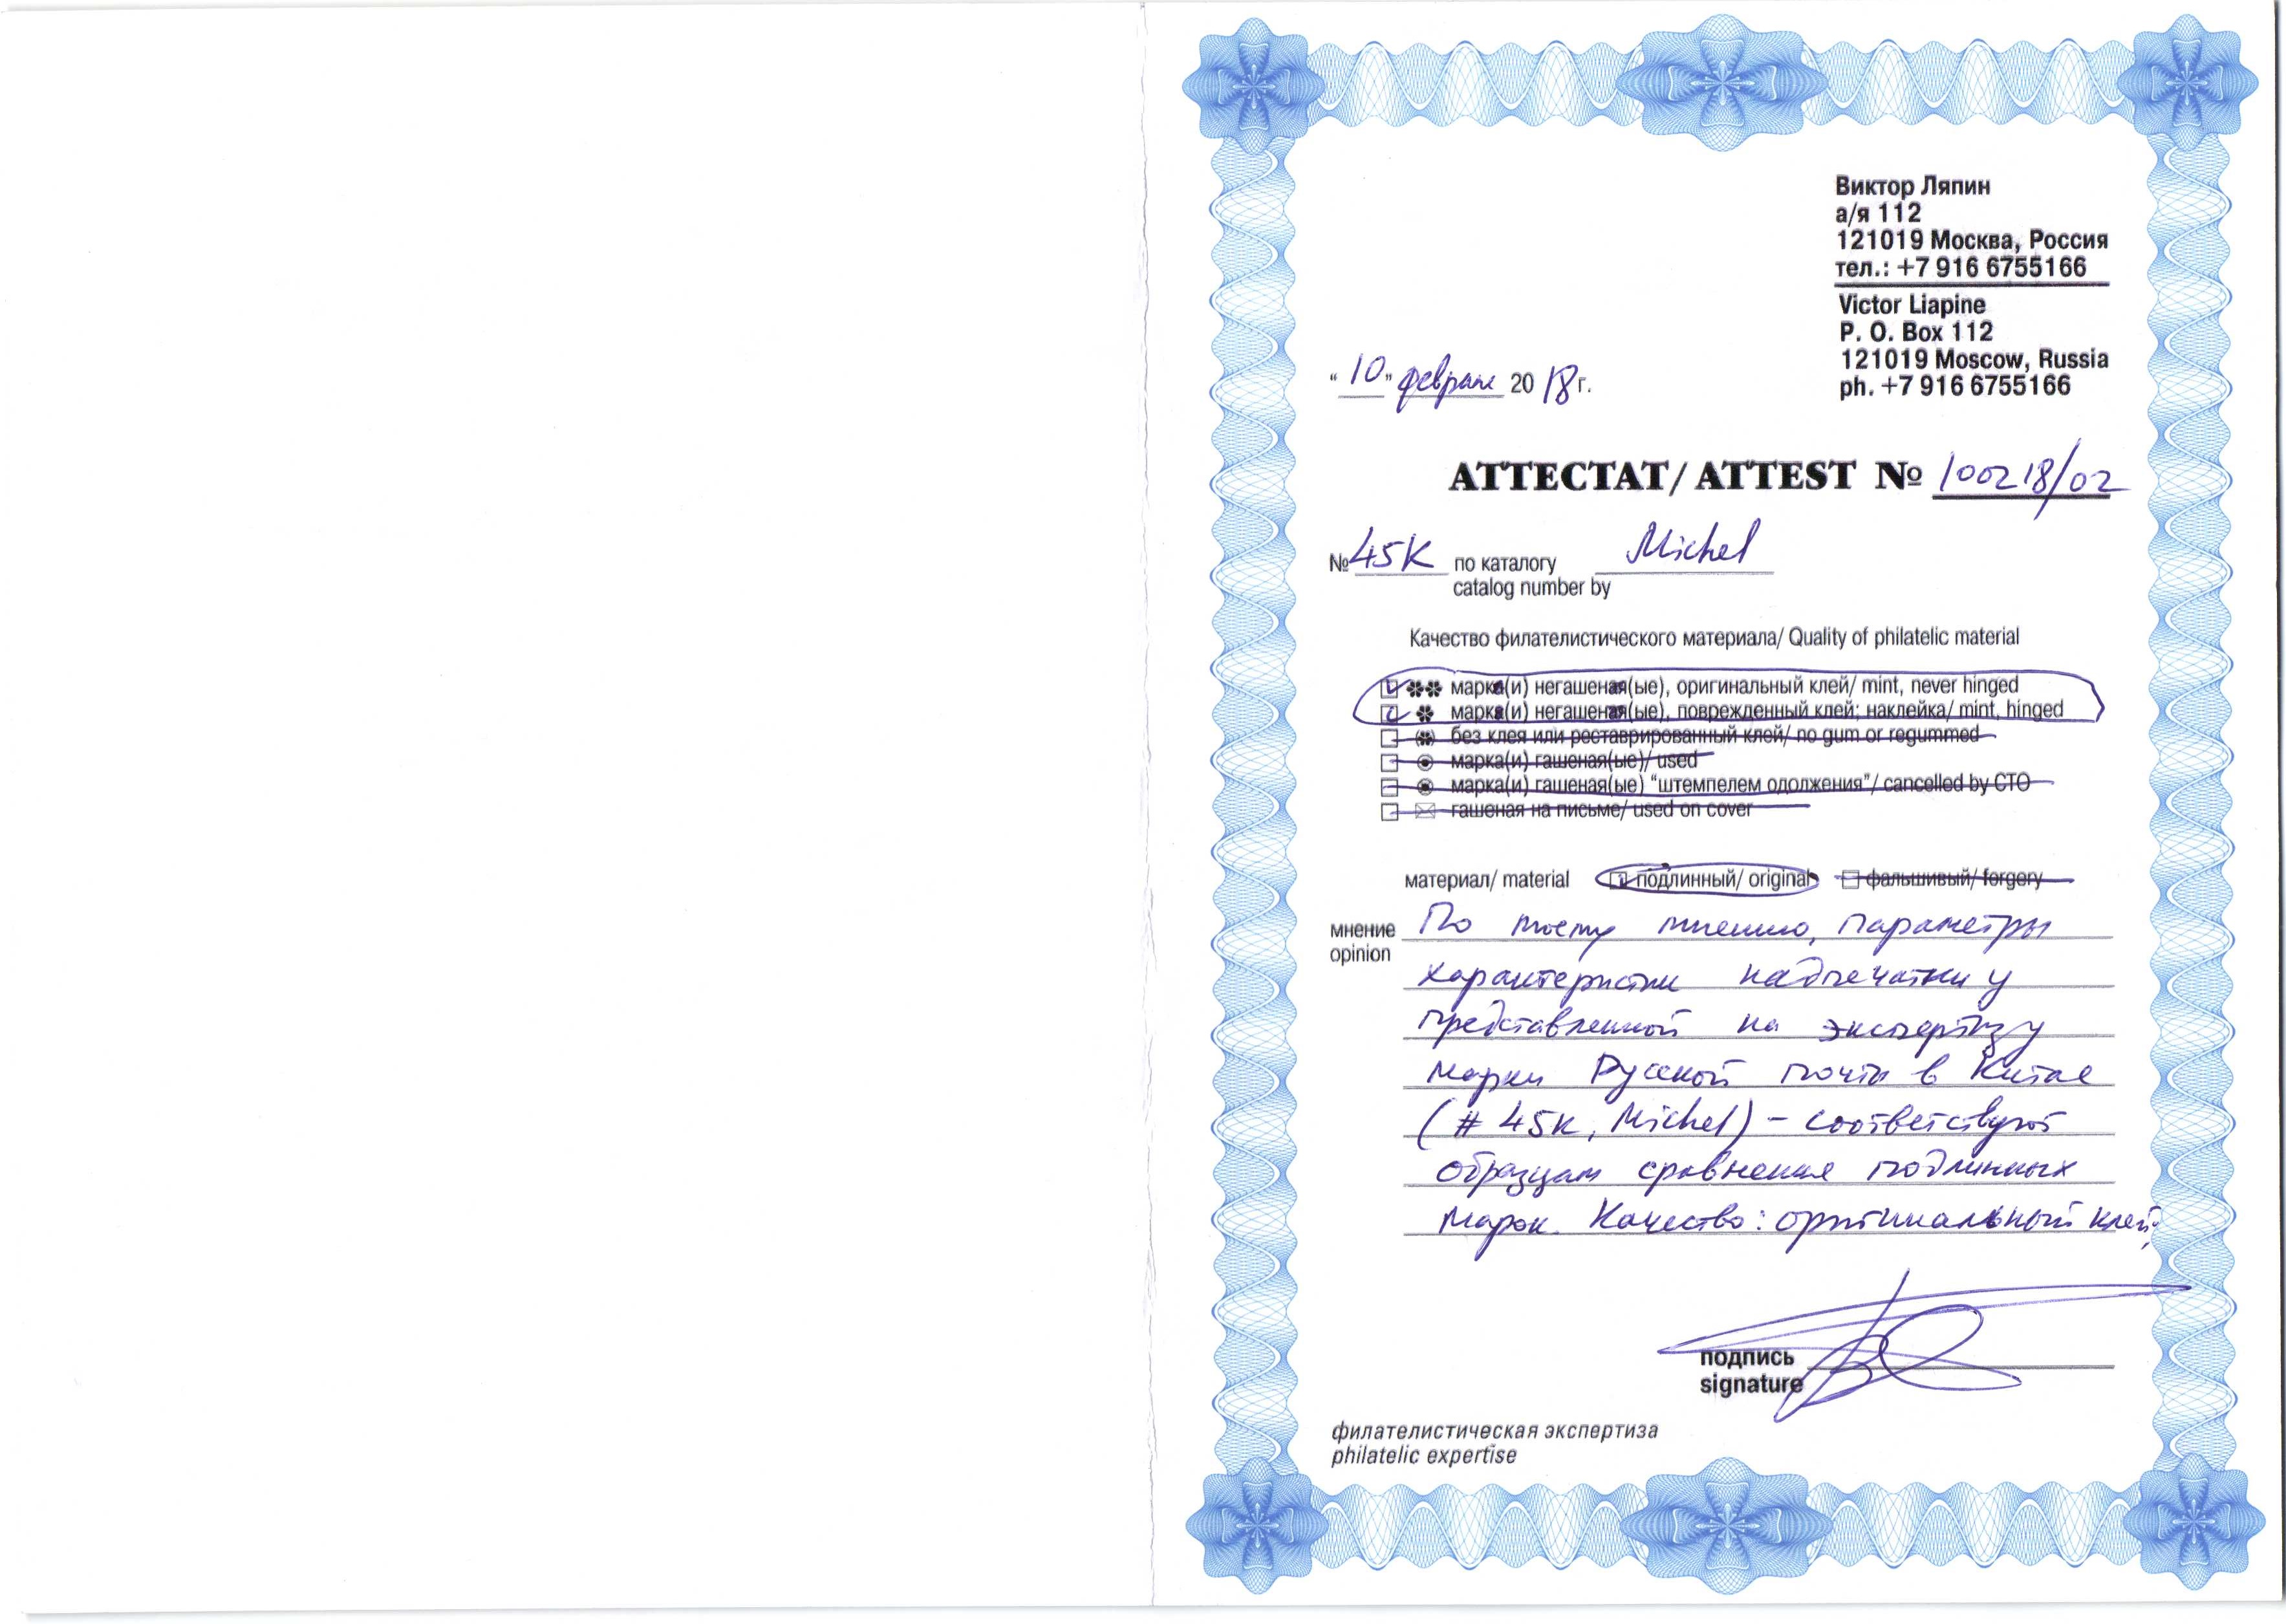 Виктор Ляпин
а/я 112
121019 Москва, Россия
тел.: +7 916 6755166
Victor Liapine
P. O. Box 112
121019 Moscow, Russia
ph. +7 916 6755166
"10" февраля 2018 г.
АТТЕСТАТ/ ATTEST № 100218/02
№ 45K по каталогу Michel
catalog number by
Качество филателистического материала/ Quality of philatelic material
марка(и) негашеная(ые), оригинальный клей/ mint, never hinged
марка(и) негашеная(ые), поврежденный клей; наклейка/ mint, hinged
без клея или реставрированный клей/ no gum or regummed
марка(и) гашеная(ые)/ used
марка(и) гашеная(ые) "штемпелем одолжения"/ cancelled by CTO
гашеная на письме/ used on cover
материал/ material подлинный/ original фальшивый/ forgery
мнение По моему мнению, параметры
opinion
характеристик надпечатки у
представленной на экспертизу
марки Русской почты в Китае
(# 45K, Michel) – соответствуют
образцам сравнения подлинных
марок. Качество: оригинальный клей.
подпись
signature
филателистическая экспертиза
philatelic expertise